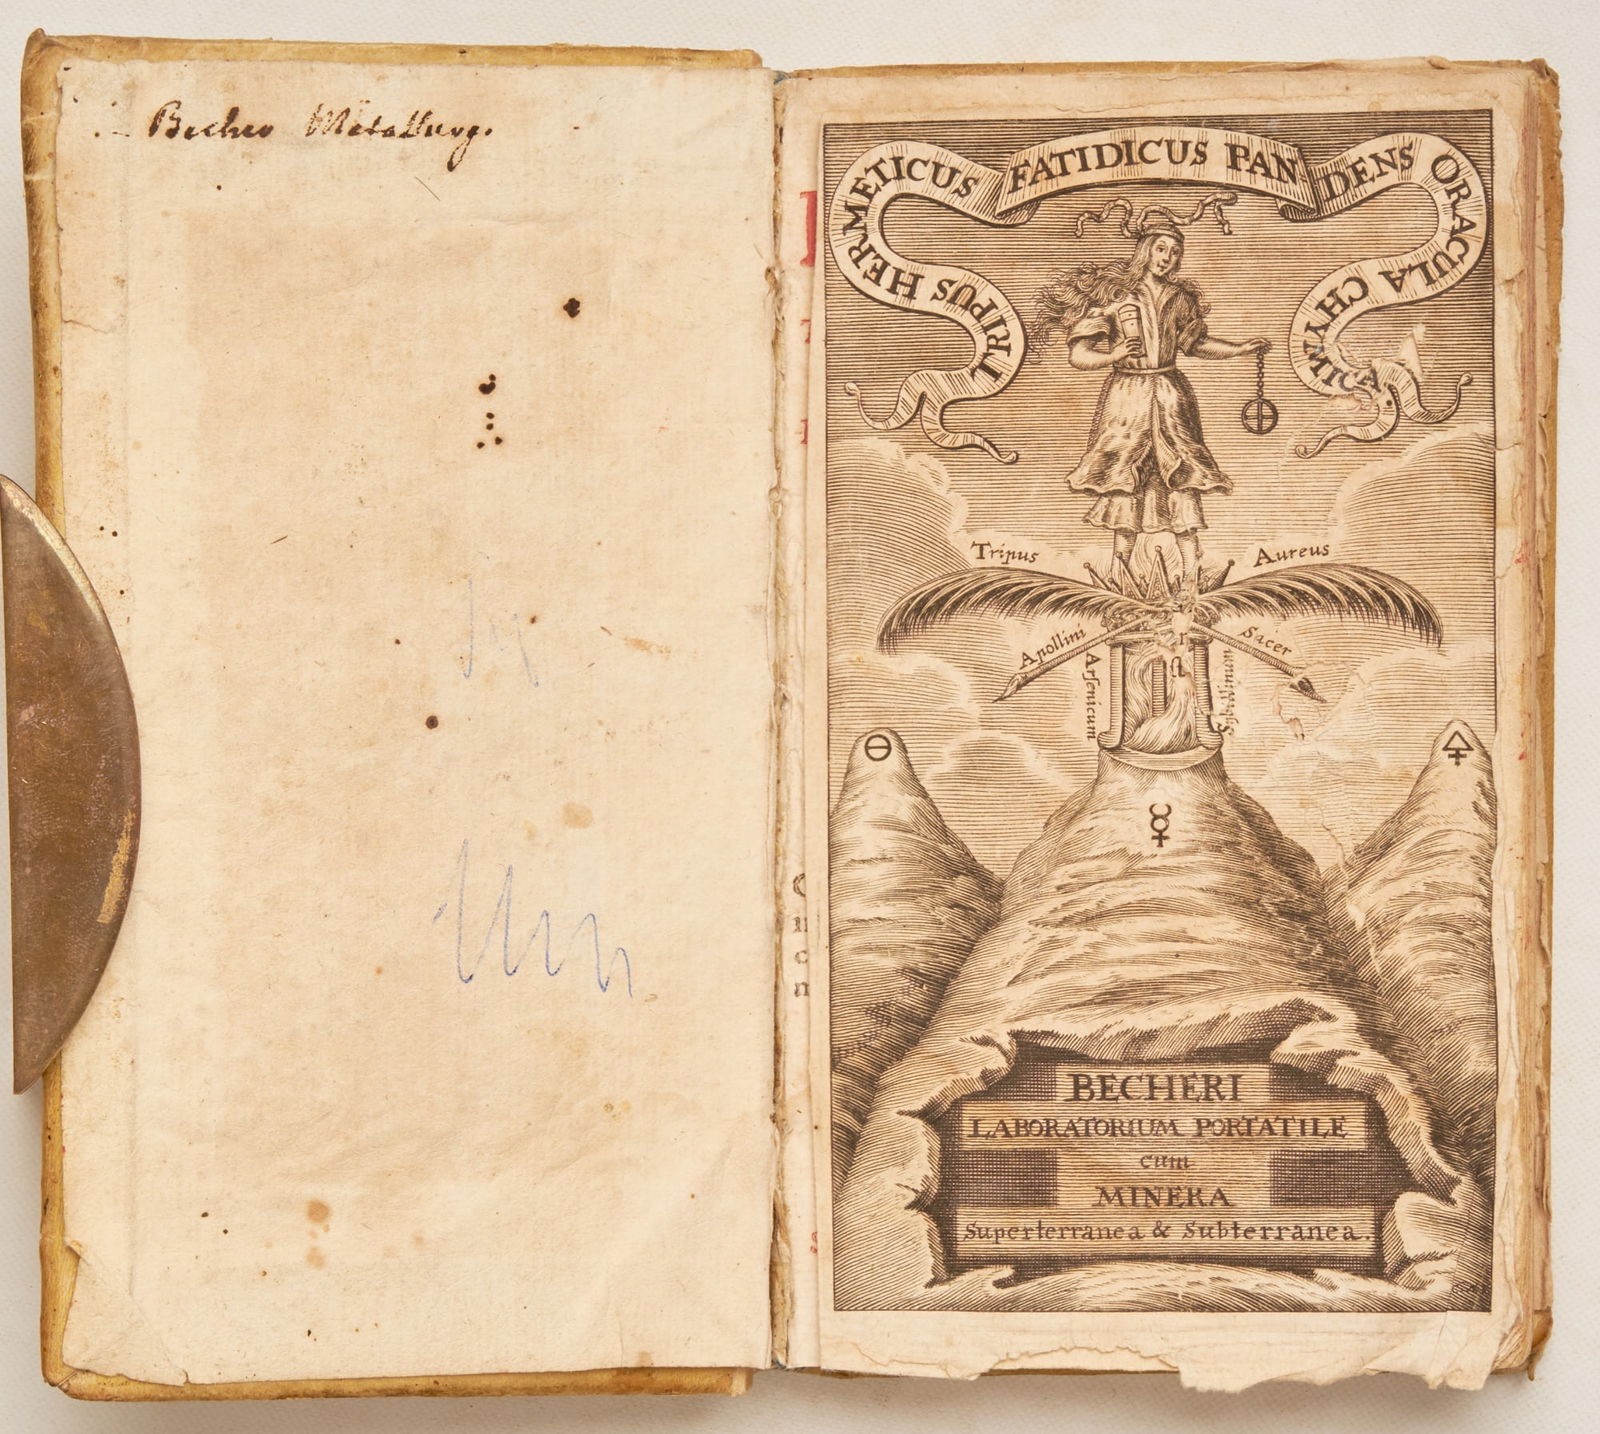 Becher Metallurg.
TRIPUS HERMETICUS FATIDICUS PANDENS ORACULA CHYMICA
Tripus Aureus
Apollini Sacer
Arsenicum
BECHERI
LABORATORIUM PORTATILE
cum
MINERA
Superterranea & Subterranea.